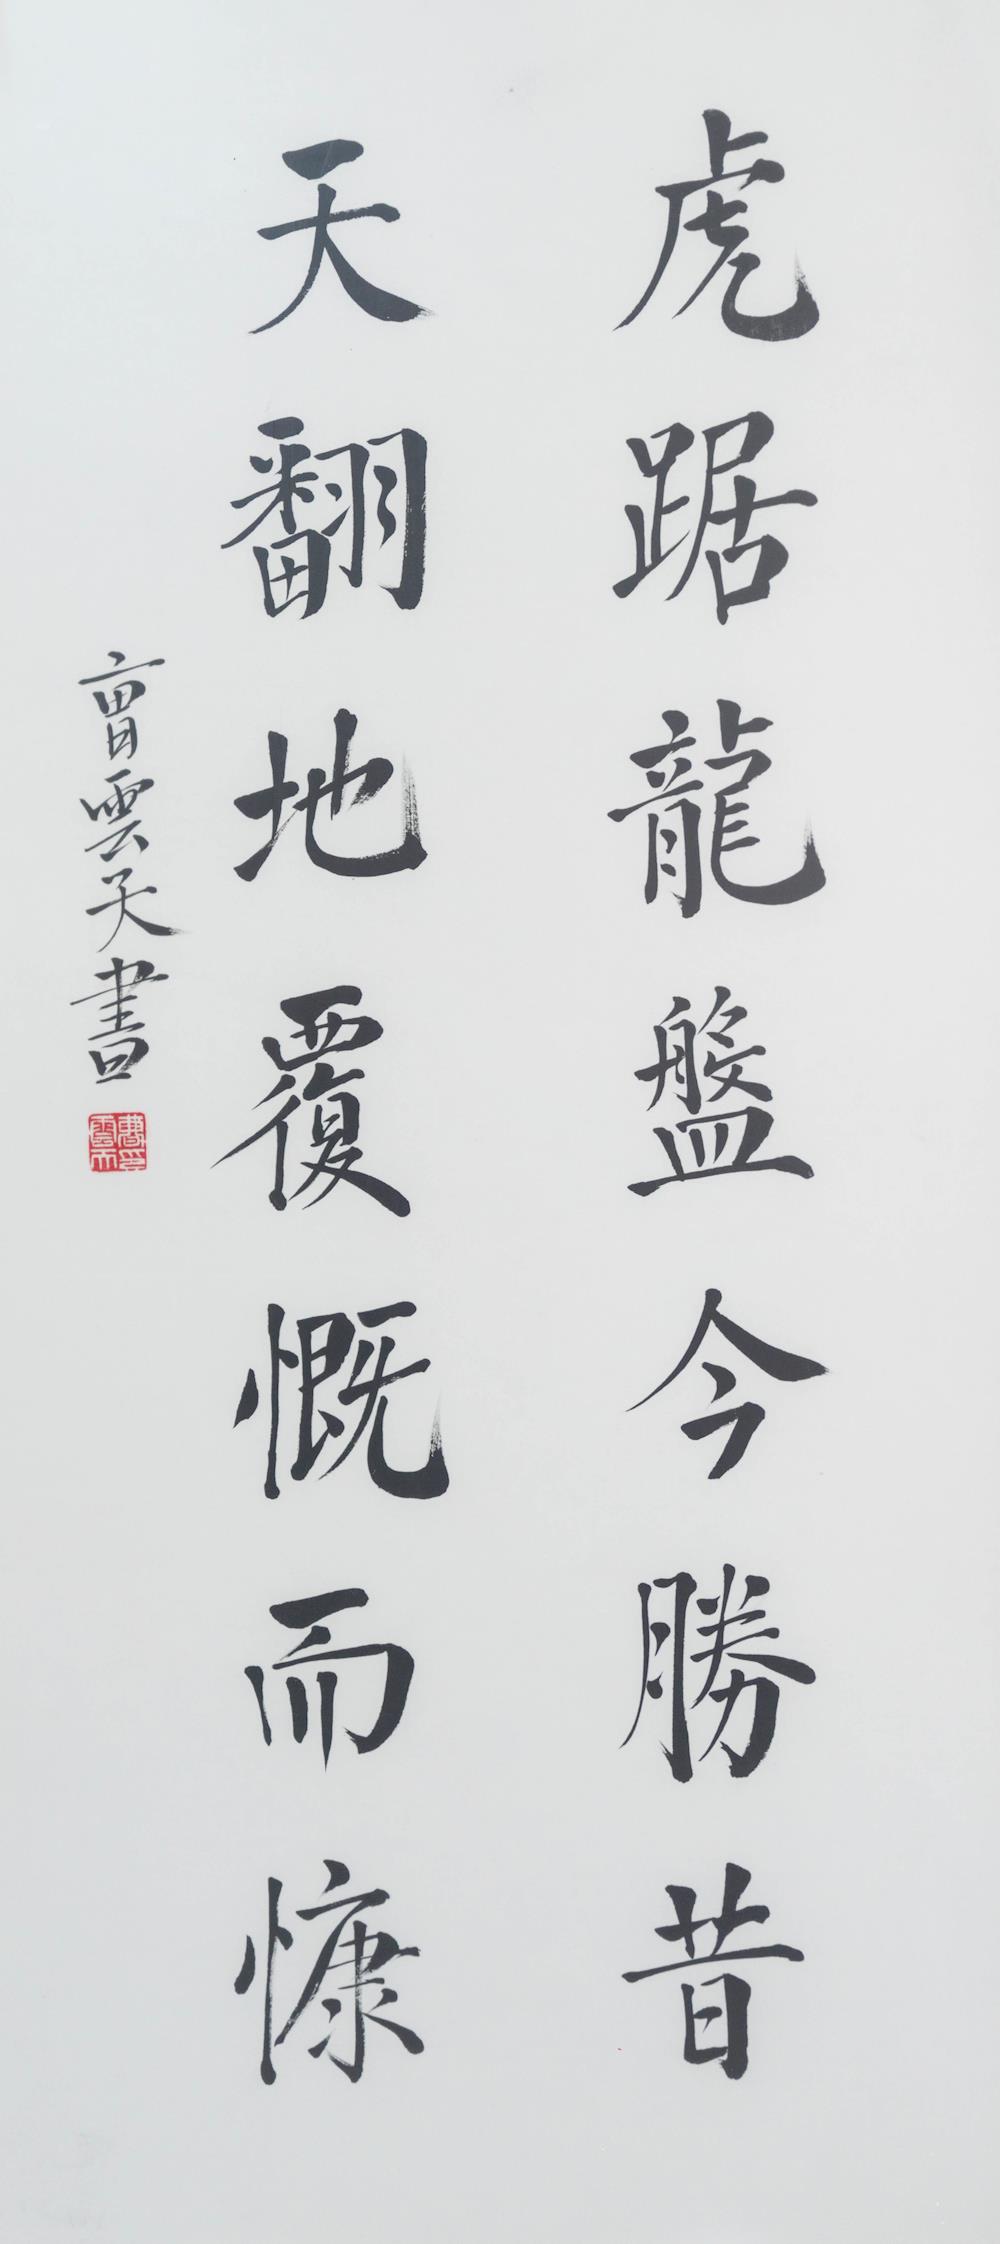 虎踞龍盤今勝昔
天翻地覆慨而慷
曹雲天書
曹印雲天